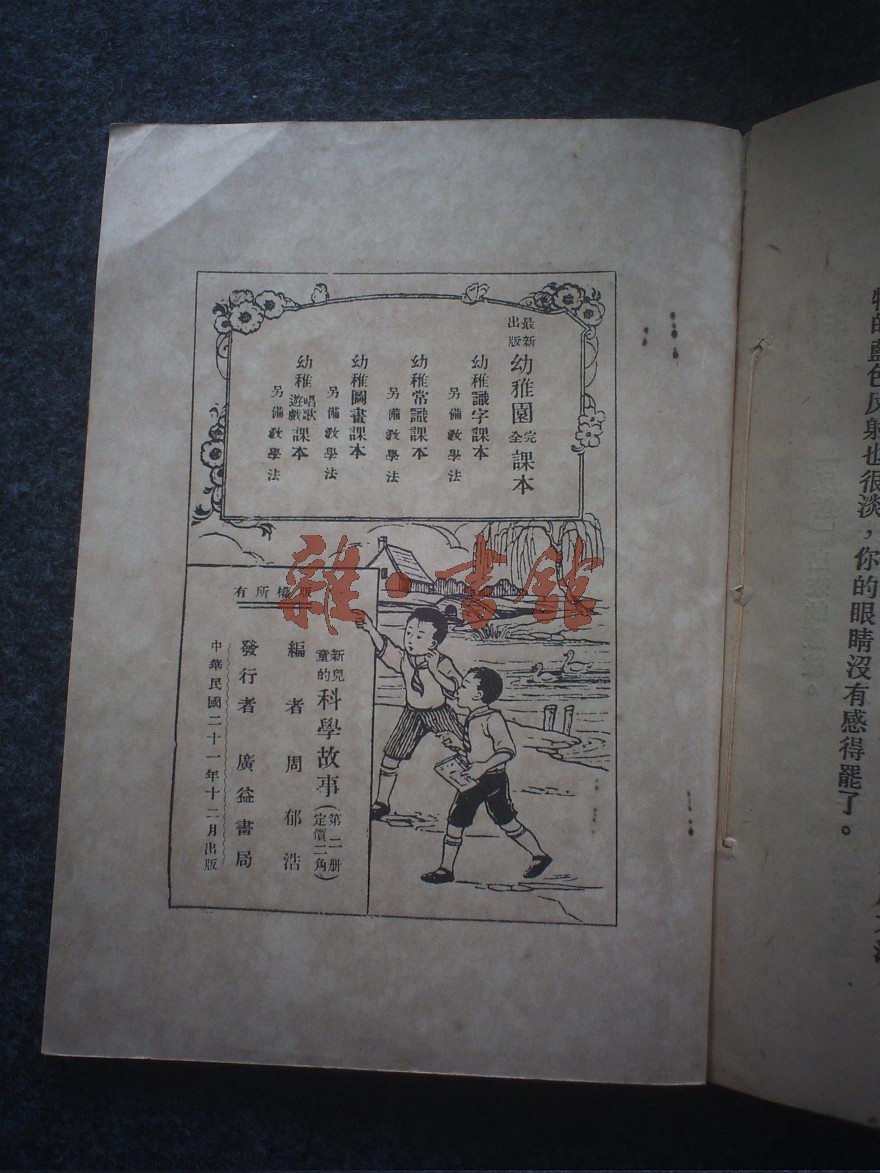 最新出版 幼稚園完全課本
幼稚識字課本
另備教學法
幼稚常識課本
另備教學法
幼稚圖畫課本
另備教學法
幼稚唱歌遊戲課本
另備教學法
雜·書館
有所權
新兒童的 科學故事 (第二册 定價二角)
編者 周郁浩
發行者 廣益書局
中華民國二十一年十二月出版
的藍色反射也很淡，你的眼睛沒有感得罷了。